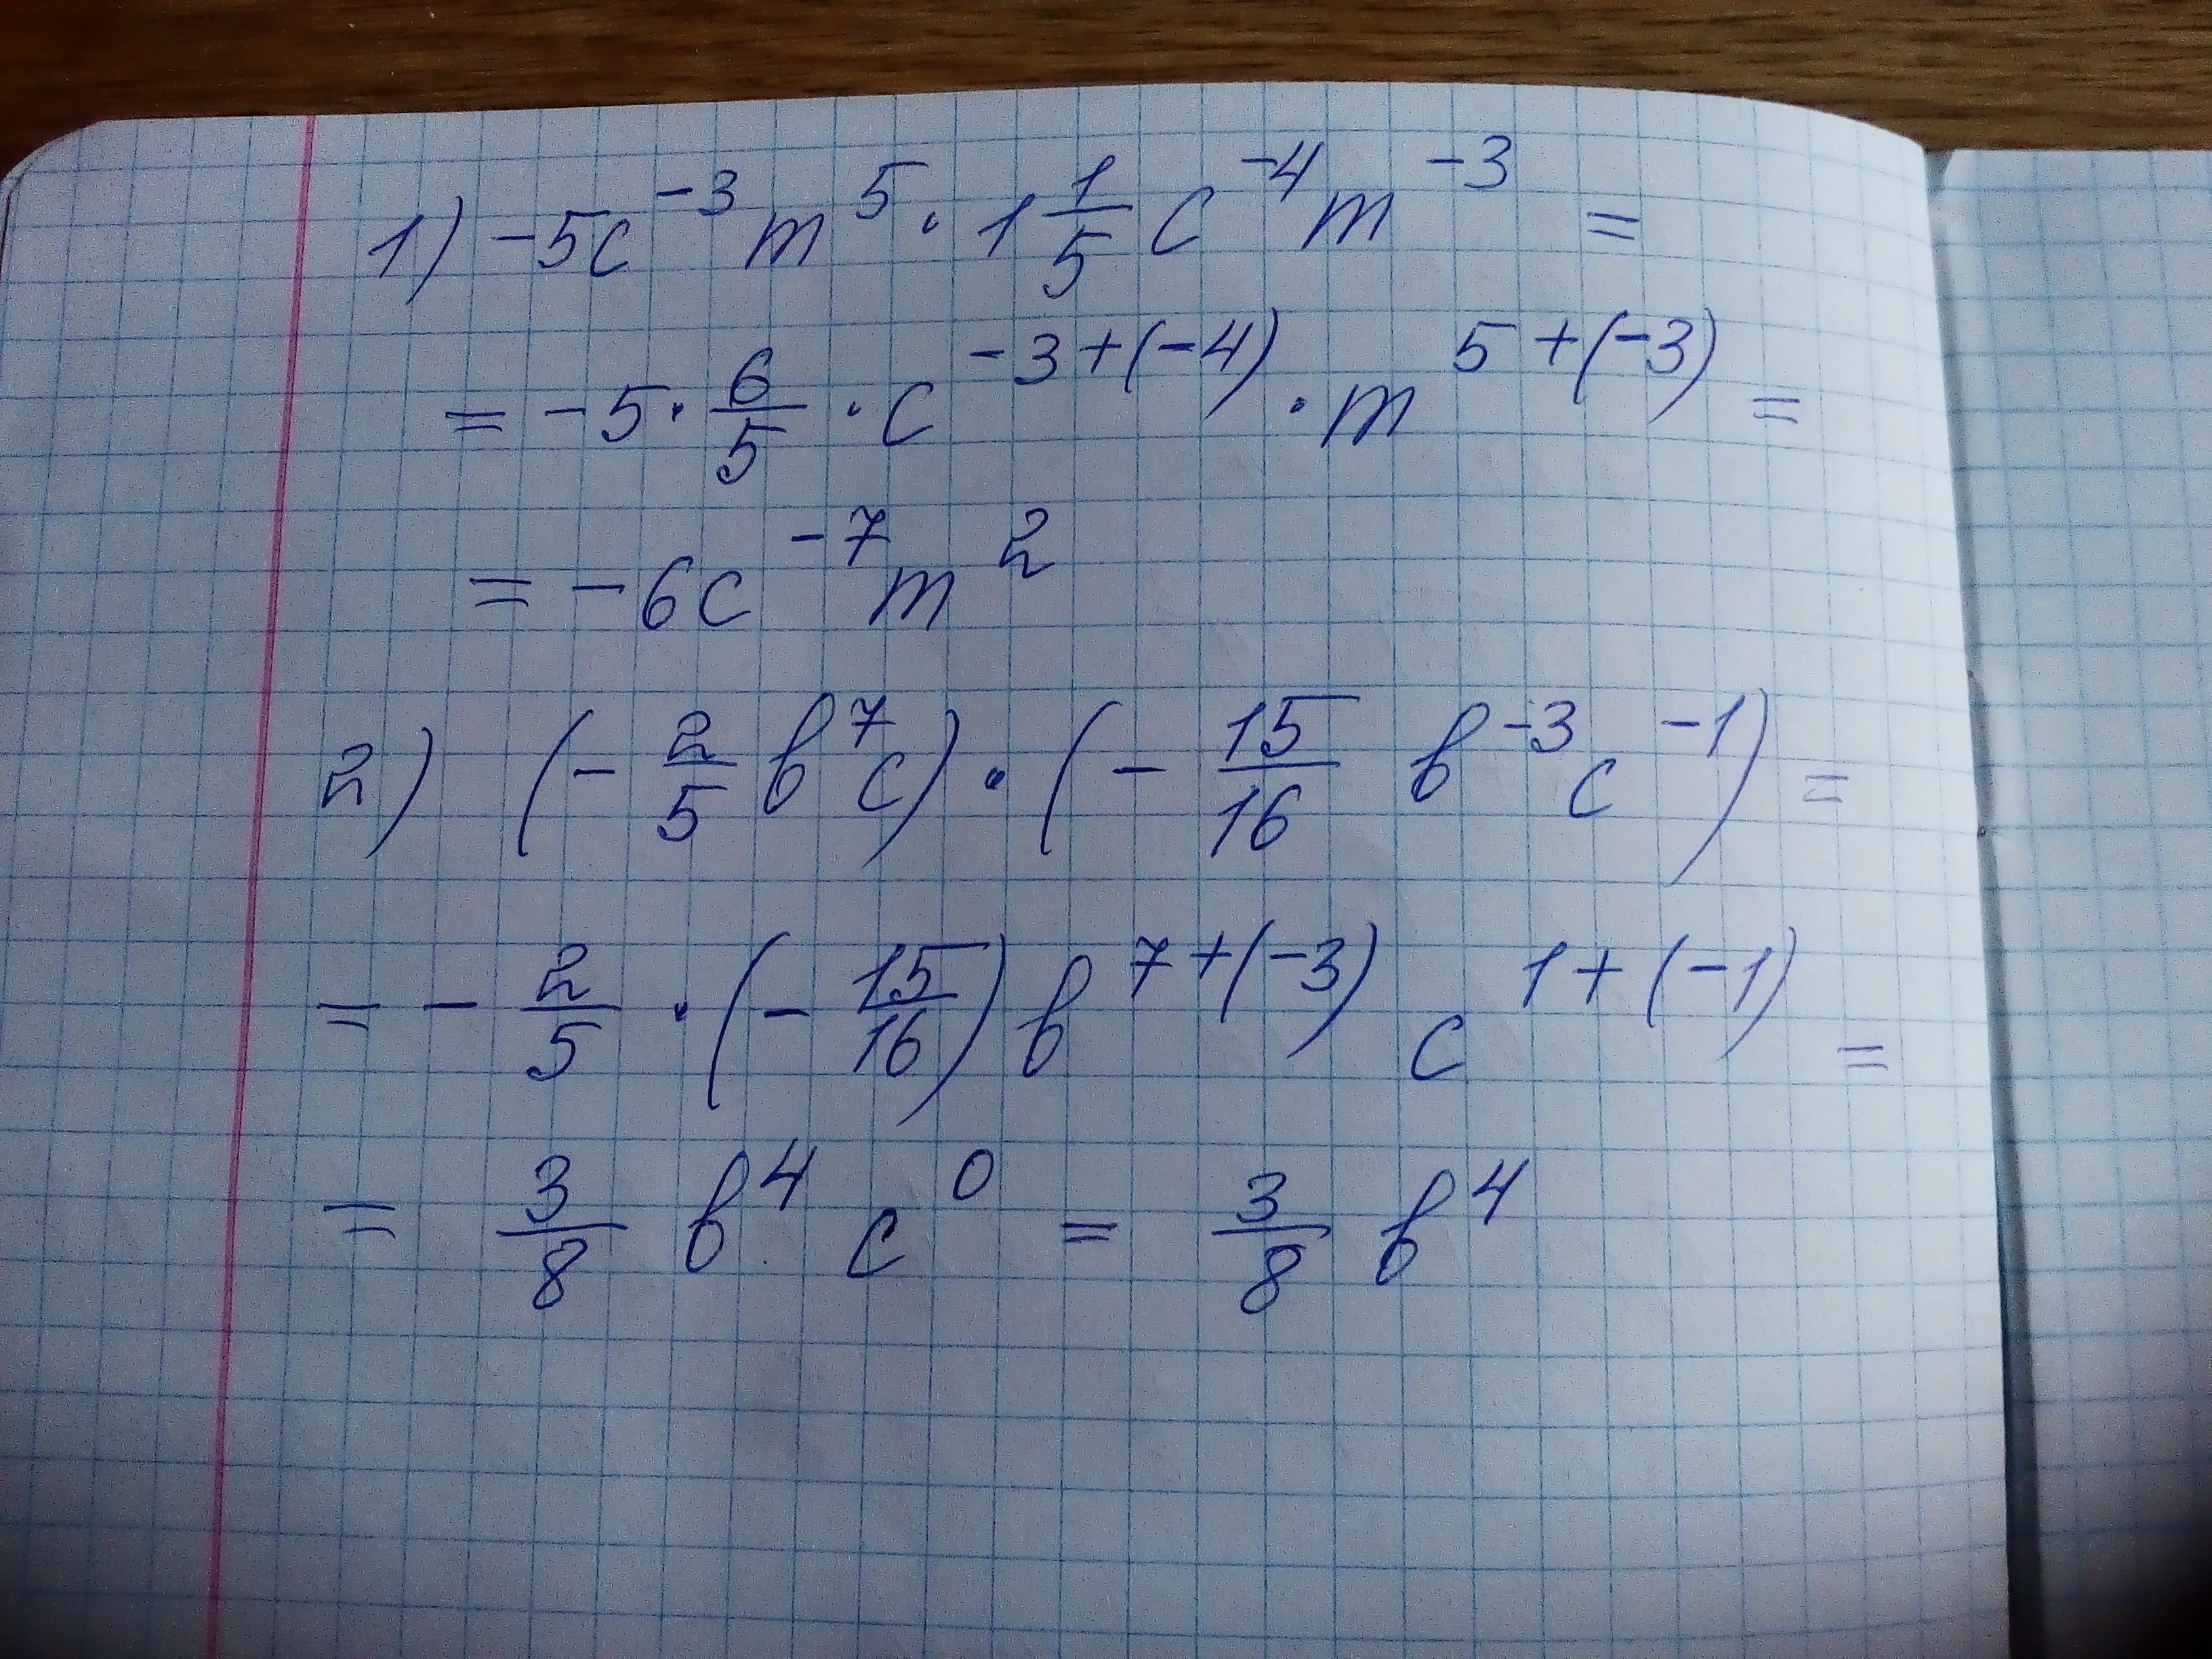 1) -5c⁻³m⁵ · 1 1/5 c⁻⁴m⁻³ =
= -5 · 6/5 · c⁻³⁺⁽⁻⁴⁾ · m⁵⁺⁽⁻³⁾ =
= -6c⁻⁷m²
2) (- 2/5 b⁷c) · (- 15/16 b⁻³c⁻¹) =
= - 2/5 · (- 15/16) b⁷⁺⁽⁻³⁾ c¹⁺⁽⁻¹⁾ =
= 3/8 b⁴ c⁰ = 3/8 b⁴